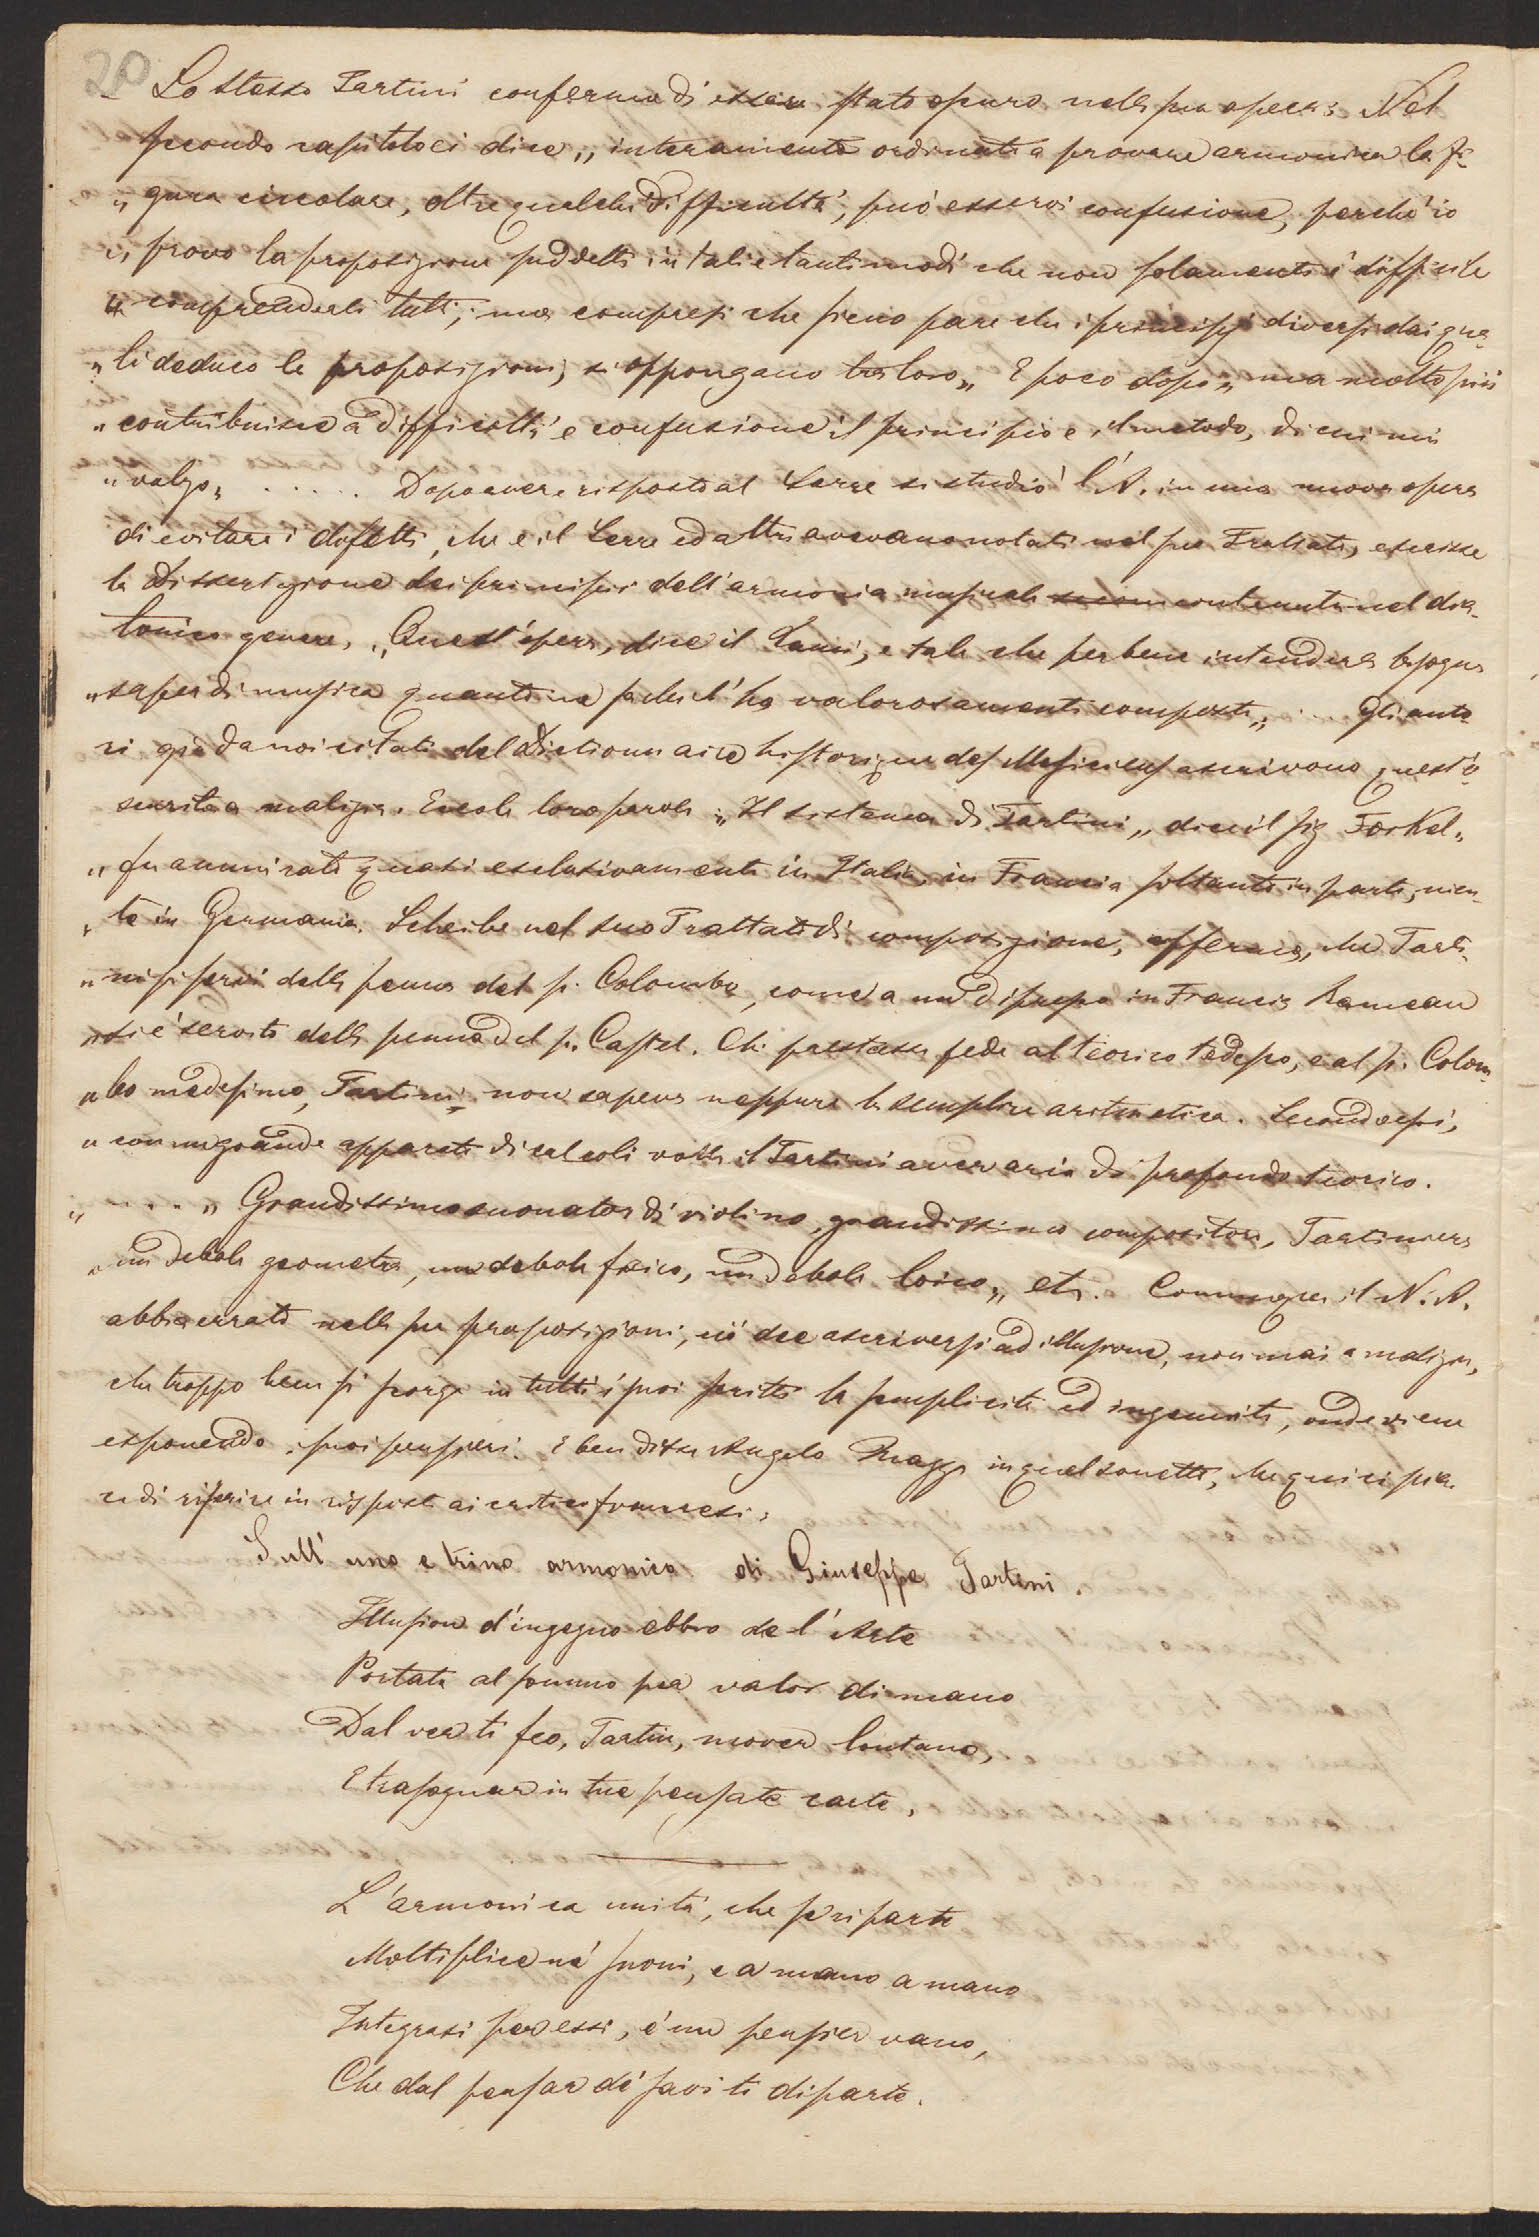 20
Lo stesso Tartini conferma di essere stato oscuro nella sua opera. Nel
secondo capitolo ci dice „ interamente ordinato a provare armonica la fi-
„ gura circolare, oltre qualche difficultà, può esservi confusione, perchè io
„ provo la proposizione suddetta in tali e tanti modi che non solamente è difficile
„ comprenderli tutti; ma compresi che sieno pare che i principj diversi dai qua-
„ li deduco le proposizioni, si oppongano tra loro„ E poco dopo „ ma molto più
„ contribuisce a difficoltà e confusione il principio e il metodo, di cui mi
„ valgo„ ..... Dopo avere risposto al Serre si studiò l'A. in una nuova opera
di evitare i difetti, che e il Serre ed altri avevano notati nel suo Trattato, e scrisse
la Dissertazione dei principii dell'armonia musicale contenuta nel dia-
tonico genere. „Quest'opera, dice il Fanzi, è tale che per bene intenderla bisogna
„saper di musica quanto ne sa chi l'ha valorosamente composta„ Gli auto-
ri già da noi citati del Dictionnaire historique des Musiciens ascrivono quest'o-
scurità a malizia. Ecco le loro parole: „Il sistema di Tartini„ dice il sig Forkel„
„ fu ammirato quasi esclusivamente in Italia, in Francia soltanto in parte, nien-
„ te in Germania. Scheibe nel suo Trattato di composizione, afferma, che Tarti-
„ ni si servì della penna del p. Colombo, come a un dipresso in Francia Rameau
„ si è servito della penna del p. Castel. Chi prestasse fede al teorico tedesco, e al p. Colom-
„ bo medesimo, Tartini non sapeva neppure la semplice aritmetica. Secondo essi,
„ con un grande apparato di calcoli volle il Tartini aver aria di profondo teorico.
„ .... „ Grandissimo suonator di violino, grandissimo compositore, Tartini era
„ un debole geometra, un debole fisico, un debole loico„ etc. Comunque il N. A.
abbia errato nelle sue proposizioni, ciò dee ascriversi ad illusione, non mai a malizia,
che troppo bene si scorge in tutti i suoi scritti la semplicità ed ingenuità, onde viene
esponendo i suoi pensieri. E ben disse Angelo Mazza in quel sonetto, che qui ci pia-
ce di riferire in risposta ai critici francesi.
Sull' uno e trino armonico di Giuseppe Tartini.
Illusion d'ingegno ebbro de l'Arte
Portata al sommo per valor di mano
Dal ver ti feo, Tartin, mover lontano,
E trasognar in tue pensate carte.
L'armonica unità, che si riparte
Moltiplice nè suoni, e a mano a mano
Integrasi per essi, è un pensier vano,
Che dal pensar dè savi ti diparte.